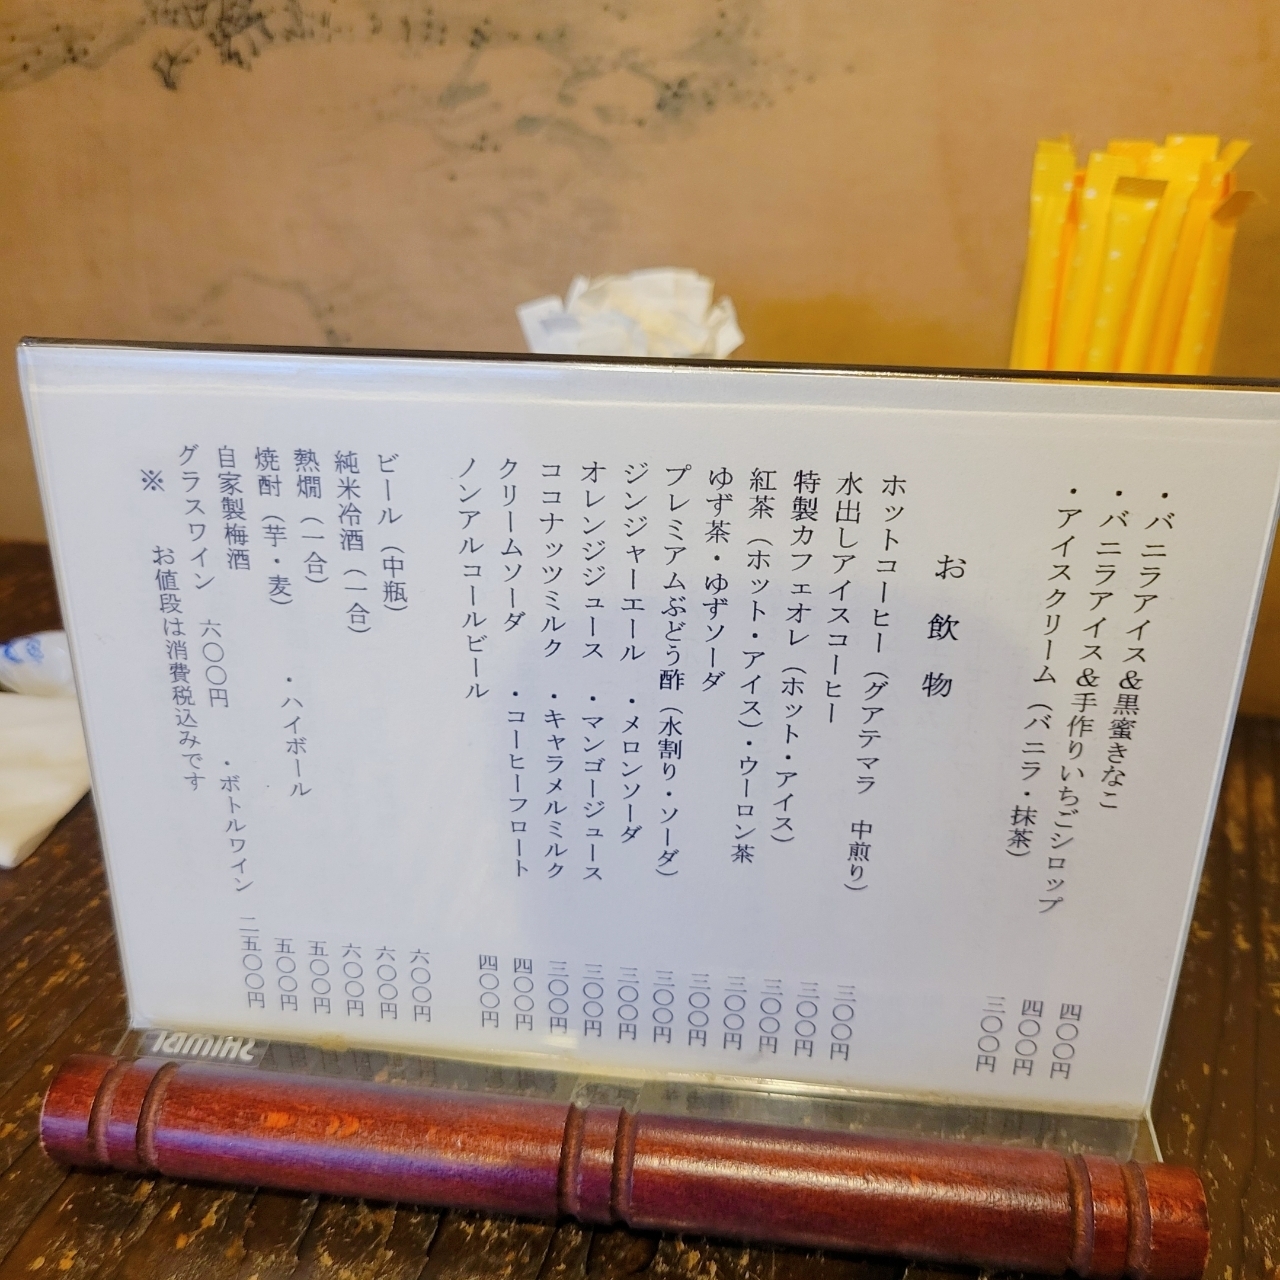 ・バニラアイス&黒蜜きなこ 四〇〇円
・バニラアイス&手作りいちごシロップ 四〇〇円
・アイスクリーム（バニラ・抹茶） 三〇〇円
お飲物
ホットコーヒー（グアテマラ 中煎り） 三〇〇円
水出しアイスコーヒー 三〇〇円
特製カフェオレ（ホット・アイス） 三〇〇円
紅茶（ホット・アイス）・ウーロン茶 三〇〇円
ゆず茶・ゆずソーダ 三〇〇円
プレミアムぶどう酢（水割り・ソーダ） 三〇〇円
ジンジャーエール ・メロンソーダ 三〇〇円
オレンジジュース ・マンゴージュース 三〇〇円
ココナッツミルク ・キャラメルミルク 三〇〇円
クリームソーダ ・コーヒーフロート 四〇〇円
ノンアルコールビール 四〇〇円
ビール（中瓶） 六〇〇円
純米冷酒（一合） 六〇〇円
熱燗（一合） 六〇〇円
焼酎（芋・麦） ・ハイボール 五〇〇円
自家製梅酒 五〇〇円
グラスワイン 六〇〇円 ・ボトルワイン 二五〇〇円
※ お値段は消費税込みです